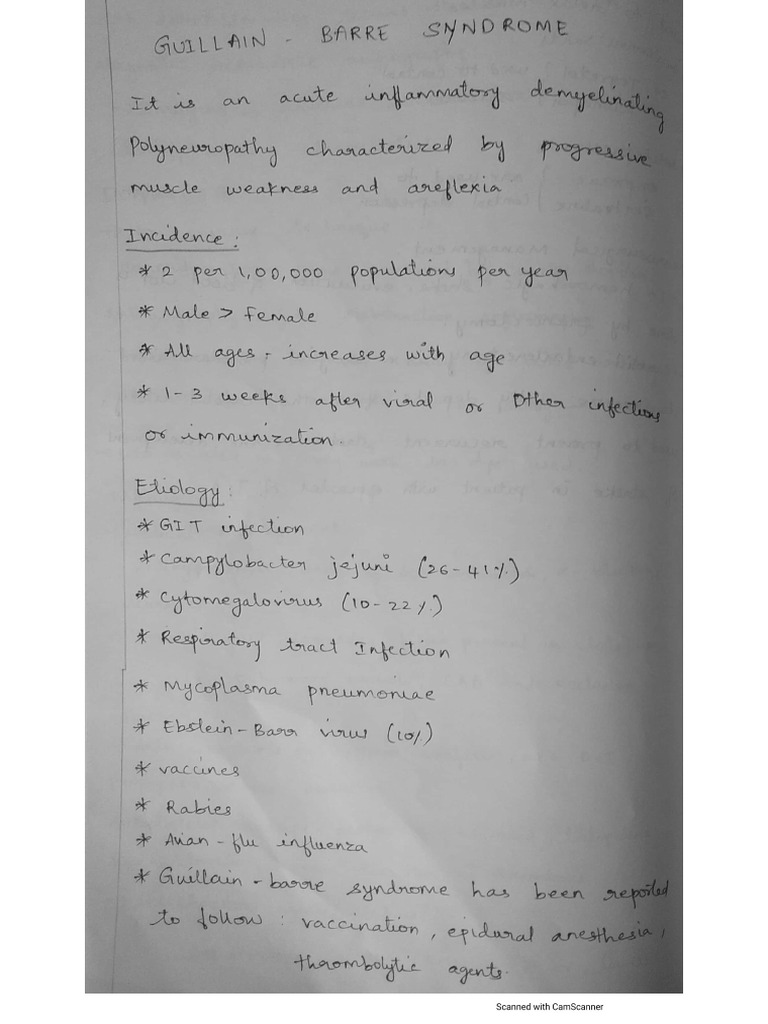 GUILLAIN - BARRE SYNDROME
It is an acute inflammatory demyelinating
Polyneuropathy characterized by progressive
muscle weakness and areflexia
Incidence :
* 2 per 1,00,000 populations per year
* Male > female
* All ages - increases with age
* 1-3 weeks after viral or other infections
or immunization.
Etiology :
* GIT infection
* Campylobacter jejuni (26-41%)
* Cytomegalovirus (10-22%)
* Respiratory tract Infection
* Mycoplasma pneumoniae
* Ebstein-Barr virus (10%)
* vaccines
* Rabies
* Avian-flu influenza
* Guillain-barre syndrome has been reported
to follow : vaccination, epidural anesthesia,
thrombolytic agents.
Scanned with CamScanner